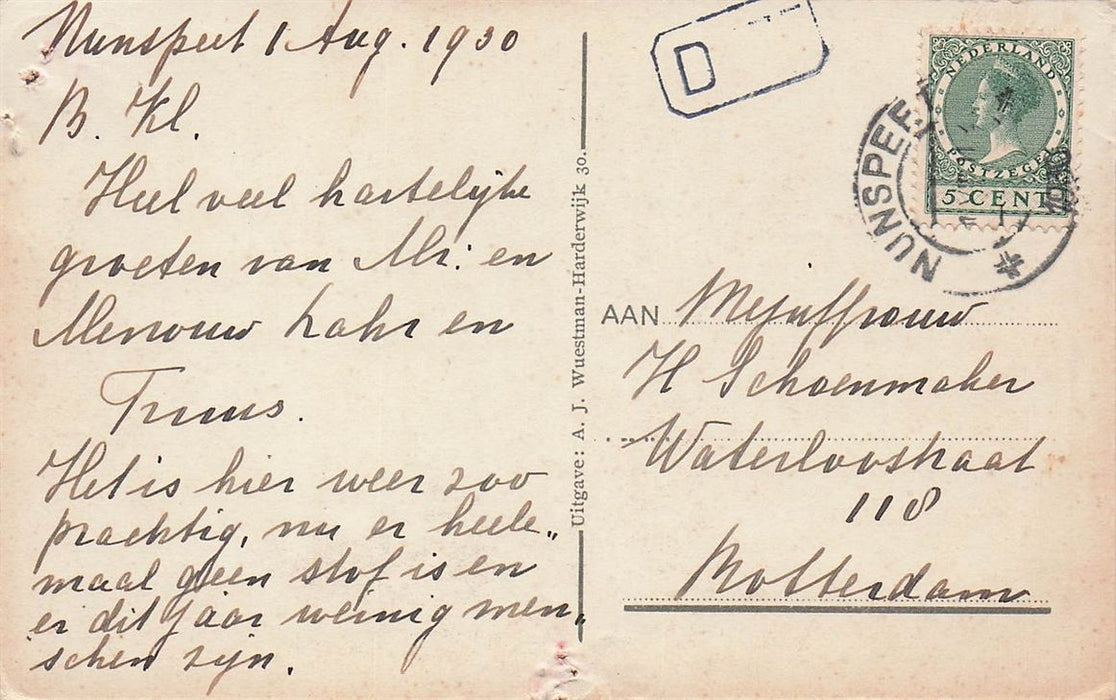 Nunspeet 1 Aug. 1930
B. Kl.
Heel veel hartelijke
groeten van Mr. en
Mevrouw en
Truus.
Het is hier weer zoo
prachtig, nu er heele„
maal geen stof is en
er dit jaar weinig men„
schen zijn.
Uitgave: A. J. Wuestman-Harderwijk 30.
D
NEDERLAND
POSTZEGEL
5 CENT
NUNSPEET
1930
AAN Mejuffrouw
H Schoenmaker
Waterloostraat
118
Rotterdam